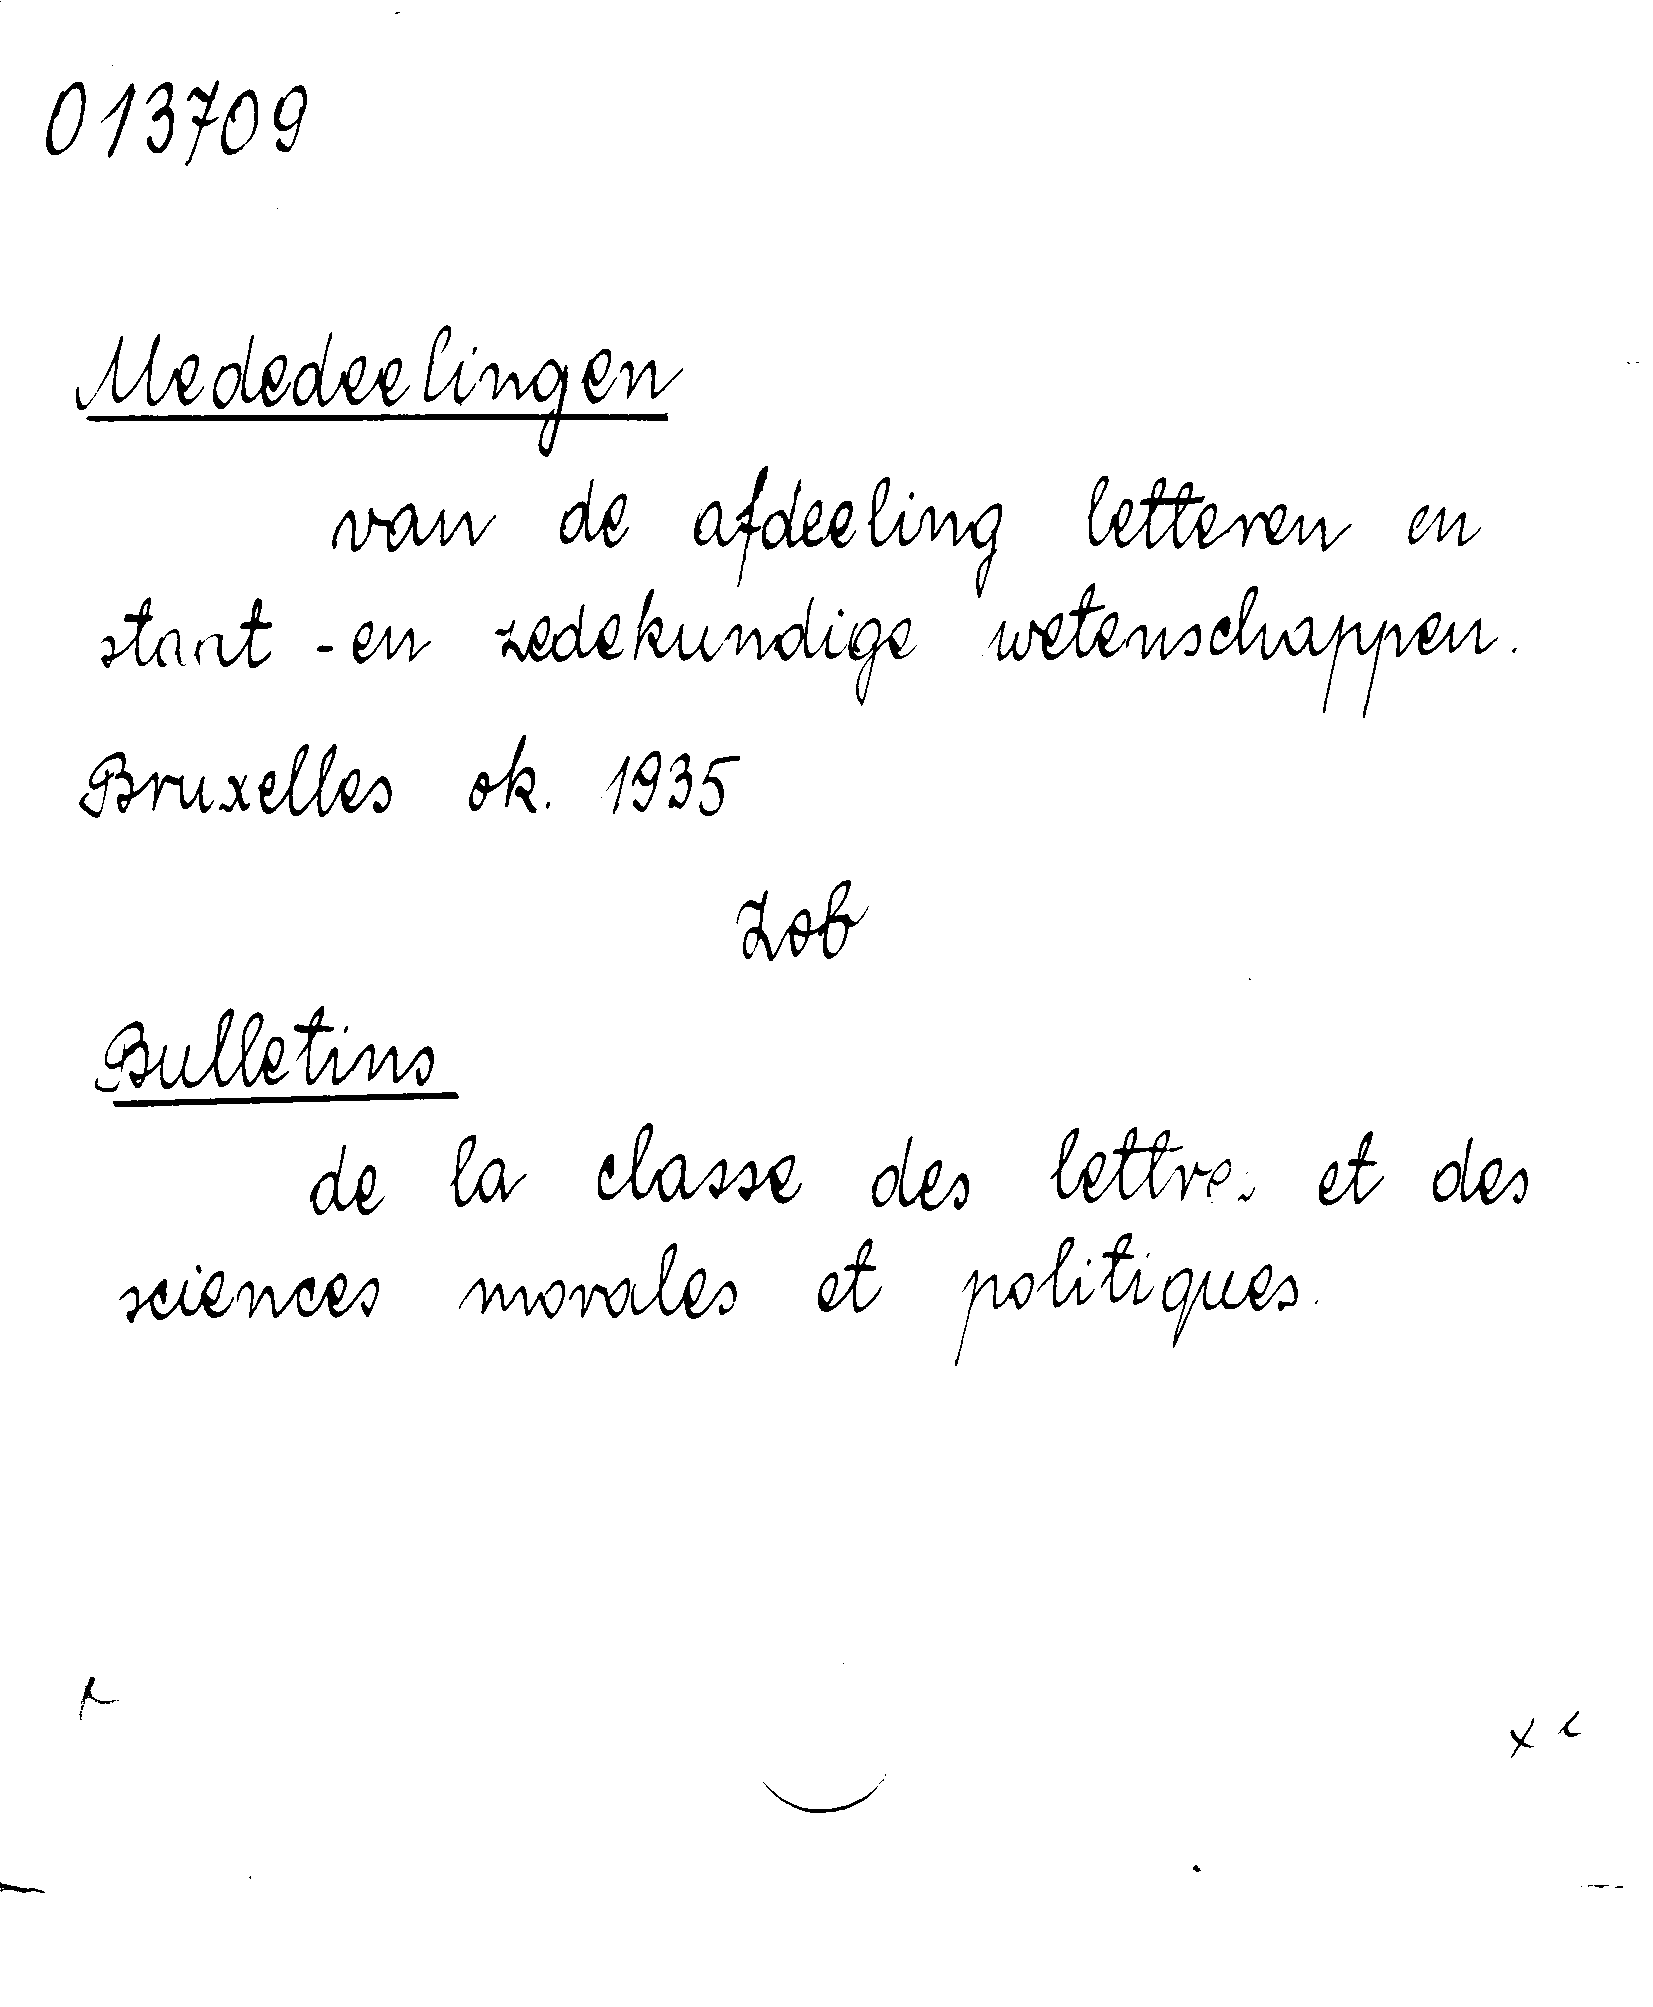 013709
Mededeelingen
van de afdeeling letteren en
staat - en zedekundige wetenschappen.
Bruxelles ok. 1935
Zob
Bulletins
de la classe des lettres et des
sciences morales et politiques.